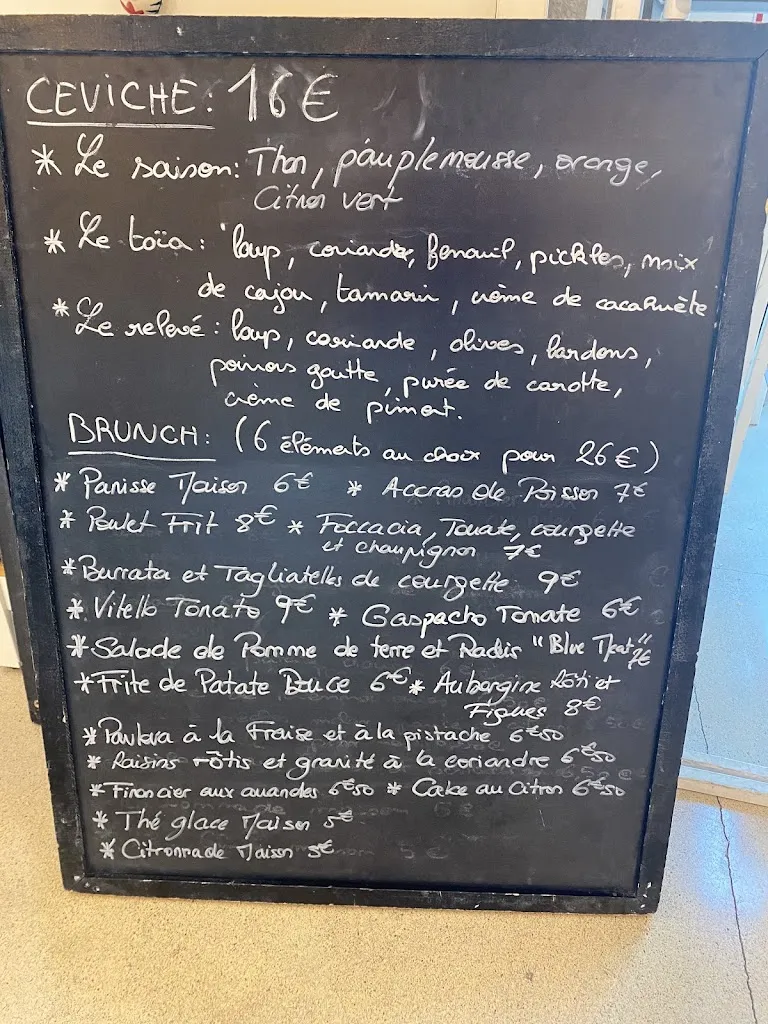 CEVICHE: 16€
* Le saison: Thon, pamplemousse, orange,
Citron vert
* Le toïa: loup, coriandre, fenouil, pickles, noix
de cajou, tamarin, crème de cacahuète
* Le relevé: loup, coriande, olives, lardons,
poivrons goutte, purée de carotte,
crème de piment.
BRUNCH: (6 éléments au choix pour 26€)
* Panisse Maison 6€ * Accras de Poisson 7€
* Poulet Frit 8€ * Foccacia, Tomate, courgette
et champignon 7€
* Burrata et Tagliatelles de courgette 9€
* Vitello Tonato 9€ * Gaspacho Tomate 6€
* Salade de Pomme de terre et Radis "Blue Meat" 7€
* Frite de Patate Douce 6€ * Aubergine Rôti et
Figues 8€
* Pavlova à la Fraise et à la pistache 6€50
* Raisins rôtis et granité à la coriandre 6€50
* Financier aux amandes 6€50 * Cake au Citron 6€50
* Thé glace Maison 5€
* Citronnade Maison 5€